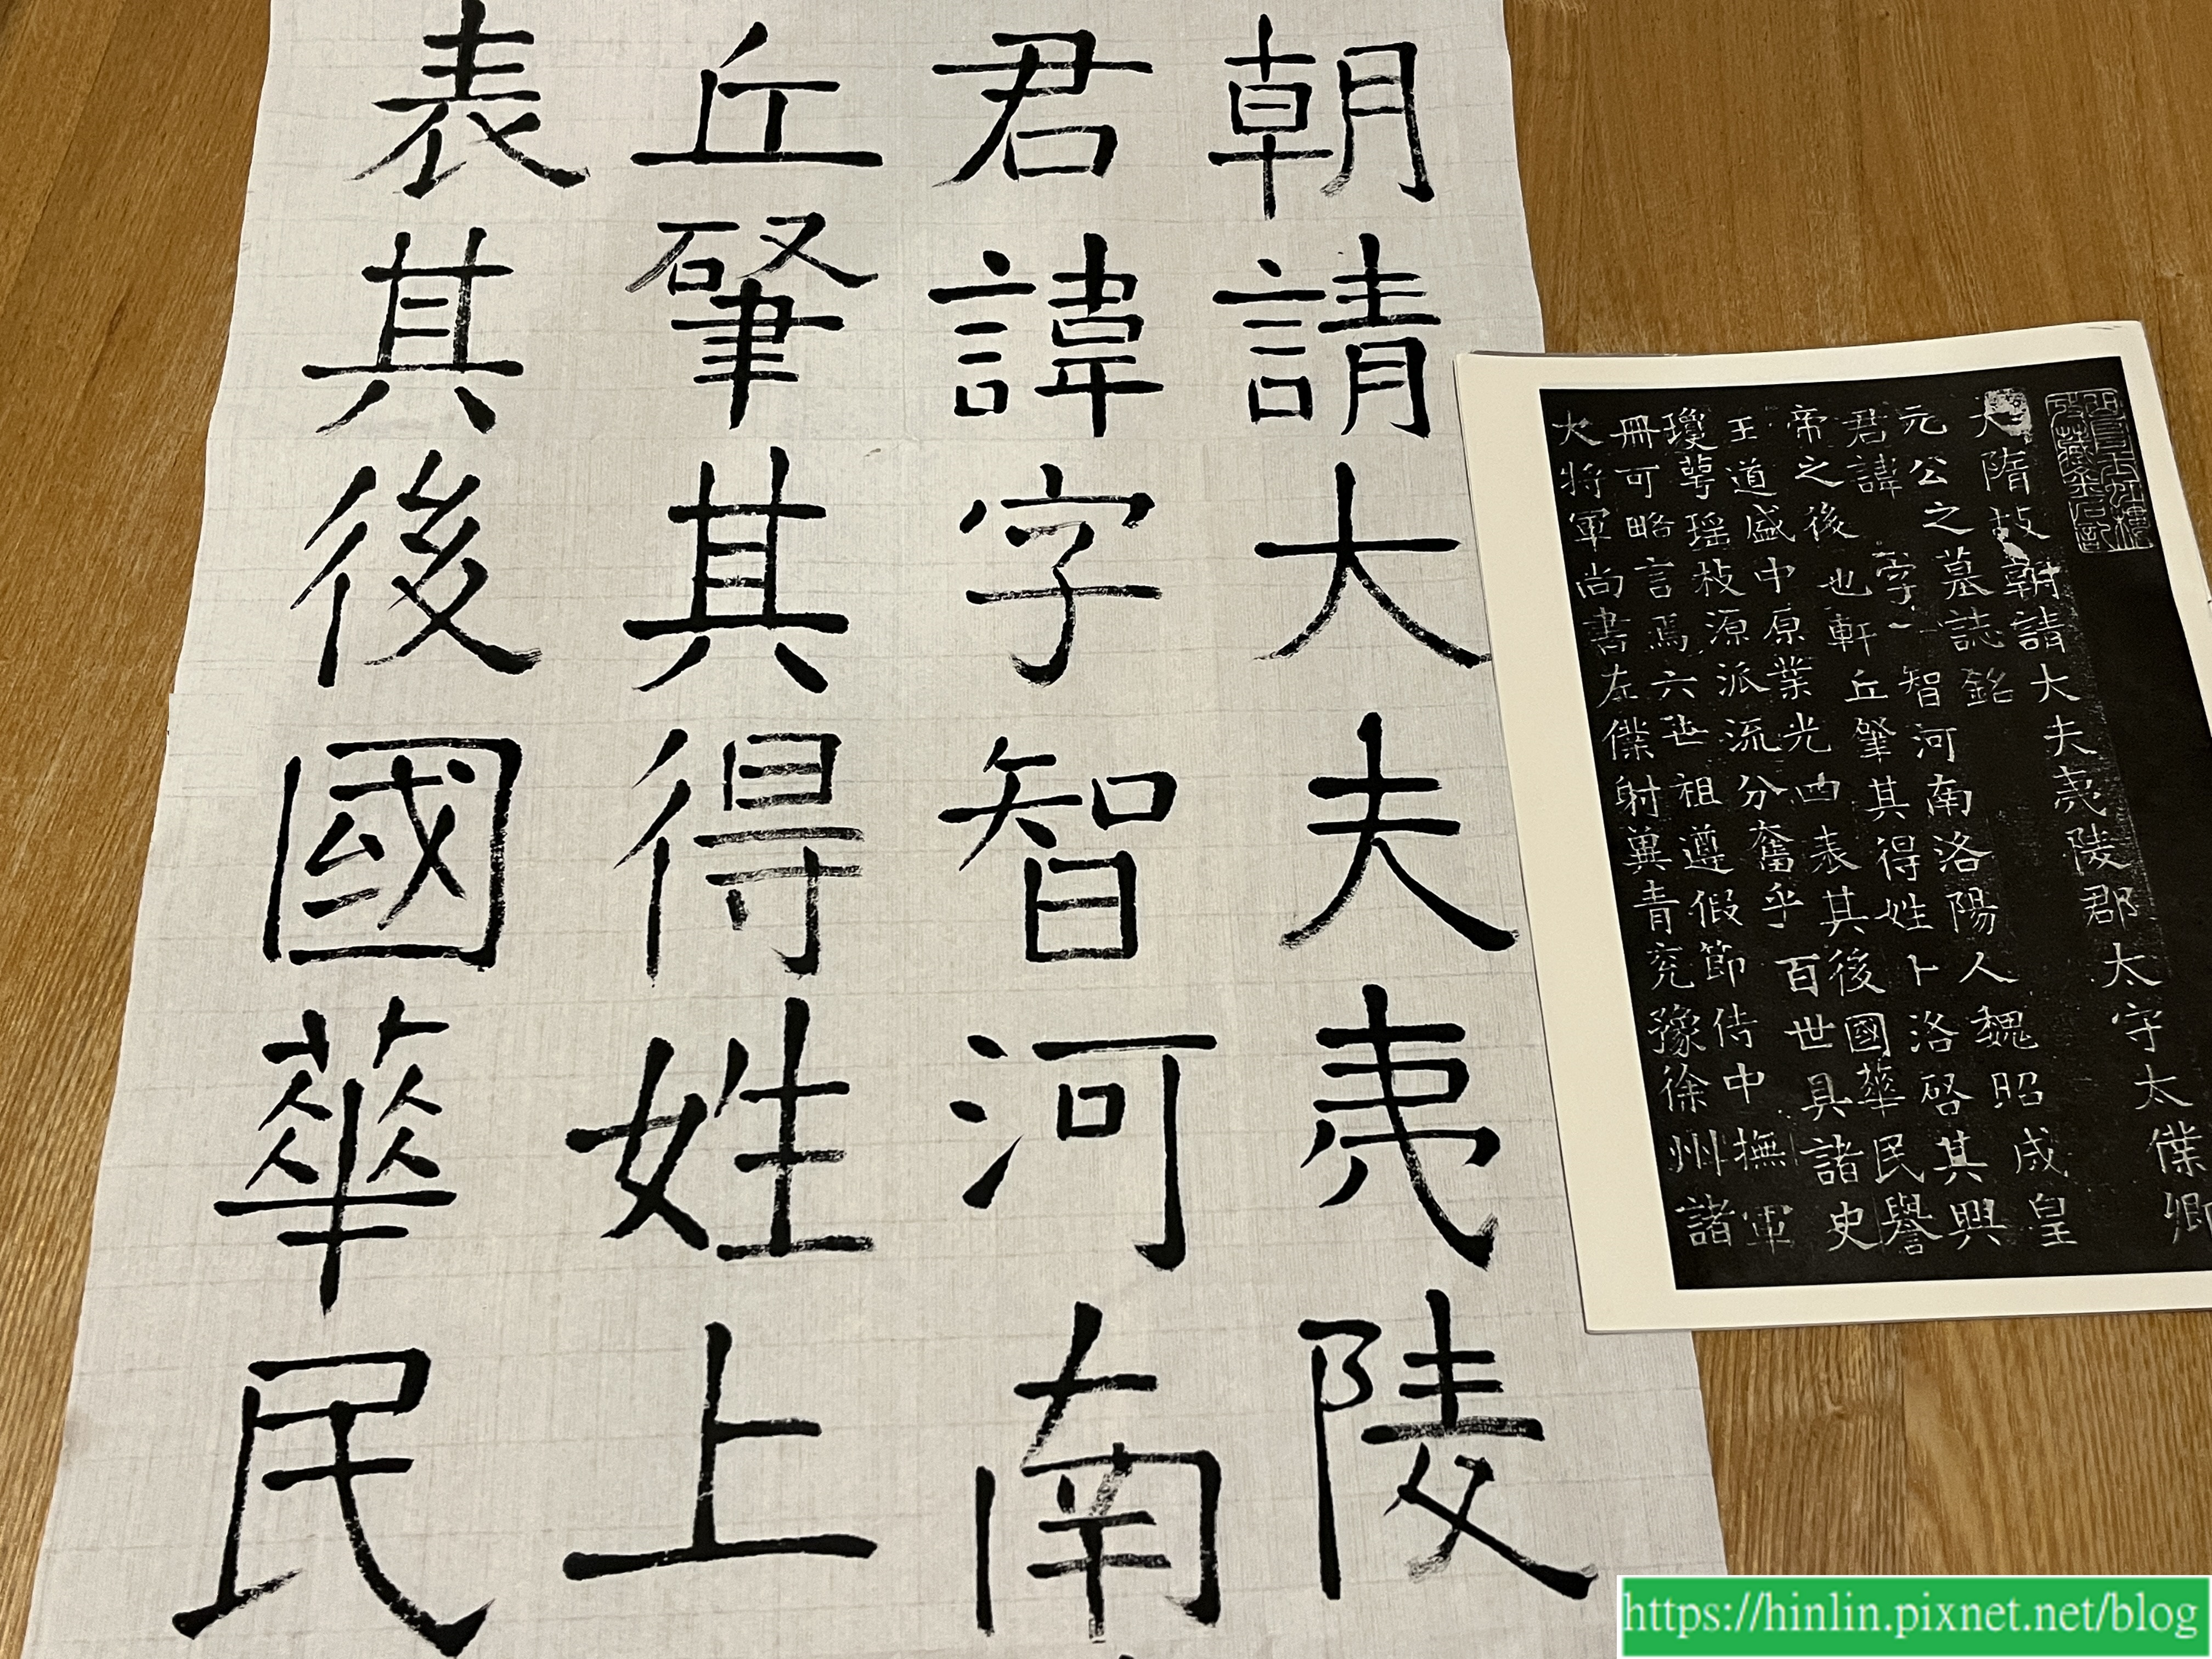 朝請大夫夷陵
君諱字智河南
丘肇其得姓上
表其後國華民
大隋故朝請大夫夷陵郡太守太僕卿
元公之墓誌銘
君諱字智河南洛陽人魏昭成皇
帝之後也軒丘肇其得姓卜洛啓其興
王道盛中原業光四表其後國華民譽
瓊萼瑤枝源派流分奮乎百世具諸史
冊可略言焉六世祖遵假節侍中撫軍
大將軍尚書左僕射冀青兗豫徐州諸
https://hinlin.pixnet.net/blog